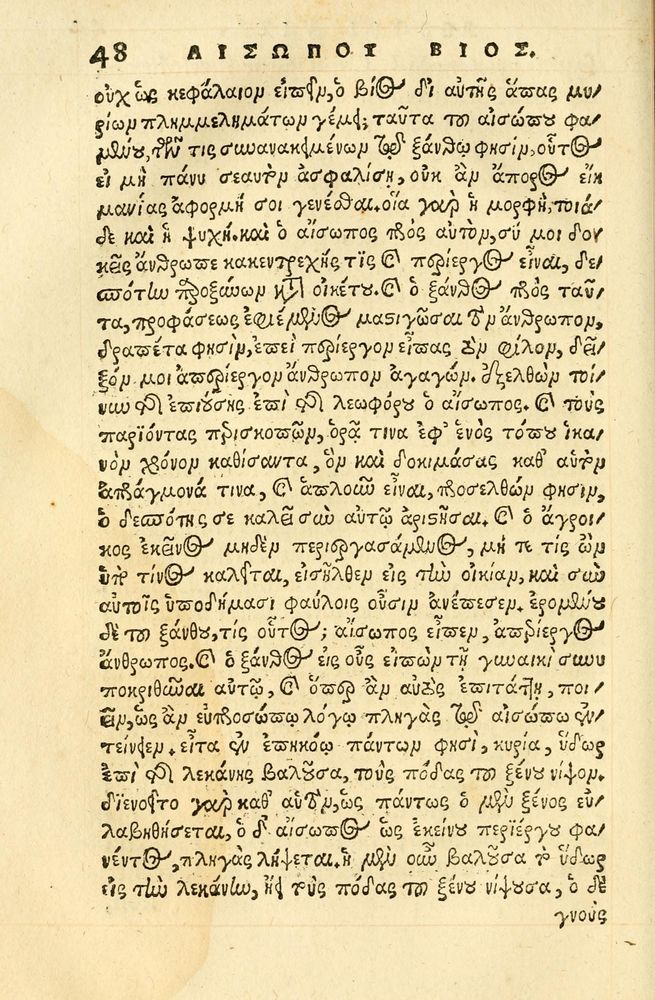 48 ΑΙΣΩΠΟΥ ΒΙΟΣ.
οὐχ ὡς κεφάλαιον εἰπεῖν, ὁ βίος δι αὐτῆς ἅπας μυ/
ρίων πλημμελημάτων γέμει; ταῦτα τοῦ αἰσώπου φα/
μένου, τῶν τις συνανακειμένων τῷ ξάνθῳ φησὶν, οὗτος
εἰ μὴ πάνυ σεαυτὸν ἀσφαλίσῃ, οὐκ ἂν ἄπορος εἰκ
μανίας ἀφορμή σοι γενέσθαι. οἵα γὰρ ἡ μορφὴ, τοιά/
δε καὶ ἡ ψυχή. καὶ ὁ αἴσωπος πρὸς αὐτὸν, σύ μοι δο/
κεῖς ἄνθρωπε κακεντρεχής τις καὶ περίεργος εἶναι, δε/
σπότην παροξύνων κατ οἰκέτου. καὶ ὁ ξάνθος πρὸς ταῦ/
τα, προφάσεως ἐφιέμενος μαστιγῶσαι τὸν ἄνθρωπον,
δραπέτα φησὶν, ἐπεὶ περίεργον εἶπας τὸν φίλον, δεῖ/
ξόν μοι ἀπερίεργον ἄνθρωπον ἀγαγών. ἐξελθὼν τοί/
νυν τῆς ἐπιούσης ἐπὶ τῆς λεωφόρου ὁ αἴσωπος. καὶ τοὺς
παριόντας περισκοπῶν, ὁρᾷ τινα ἐφ' ἑνὸς τόπου ἱκα/
νὸν χρόνον καθίσαντα, ὃν καὶ δοκιμάσας καθ' αὑτὸν
ἀπράγμονά τινα, καὶ ἁπλοῦν εἶναι, προσελθὼν φησὶν,
ὁ δεσπότης σε καλεῖ σὺν αὐτῷ ἀριστῆσαι. καὶ ὁ ἄγροι/
κος ἐκεῖνος μηδὲν περιεργασάμενος, μή τε τίς ὢν
ὑπὸ τίνος καλεῖται, εἰσῆλθεν εἰς τὴν οἰκίαν, καὶ σὺν
αὐτοῖς ὑποδήμασι φαύλοις οὖσιν ἀνέπεσεν. ἐρομένου
δὲ τοῦ ξάνθου, τίς οὗτος; αἴσωπος εἶπεν, ἀπερίεργος
ἄνθρωπος. καὶ ὁ ξάνθος εἰς οὖς εἰπὼν τῇ γυναικὶ συνυ
ποκριθῆναι αὐτῷ, καὶ ὅπερ ἂν αὐτὸς ἐπιτάττῃ, ποι/
εῖν, ὡς ἂν εὐπροσώπῳ λόγῳ πληγὰς τῷ αἰσώπῳ ἐν/
τείνειεν. εἶτα ἐν ἐπηκόῳ πάντων φησὶ, κυρία, ὕδωρ
ἐπὶ τῆς λεκάνης βαλοῦσα, τοὺς πόδας τοῦ ξένου νίψον.
διενοεῖτο γὰρ καθ' αὑτὸν, ὡς πάντως ὁ μὲν ξένος εὐ/
λαβηθήσεται, ὁ δ' αἴσωπος ὡς ἐκείνου περιέργου φα/
νέντος, πληγὰς λήψεται. ἡ μὲν οὖν βαλοῦσα τὸ ὕδωρ
εἰς τὴν λεκάνην, ᾔει τοὺς πόδας τοῦ ξένου νίψουσα, ὁ δὲ
γνοὺς